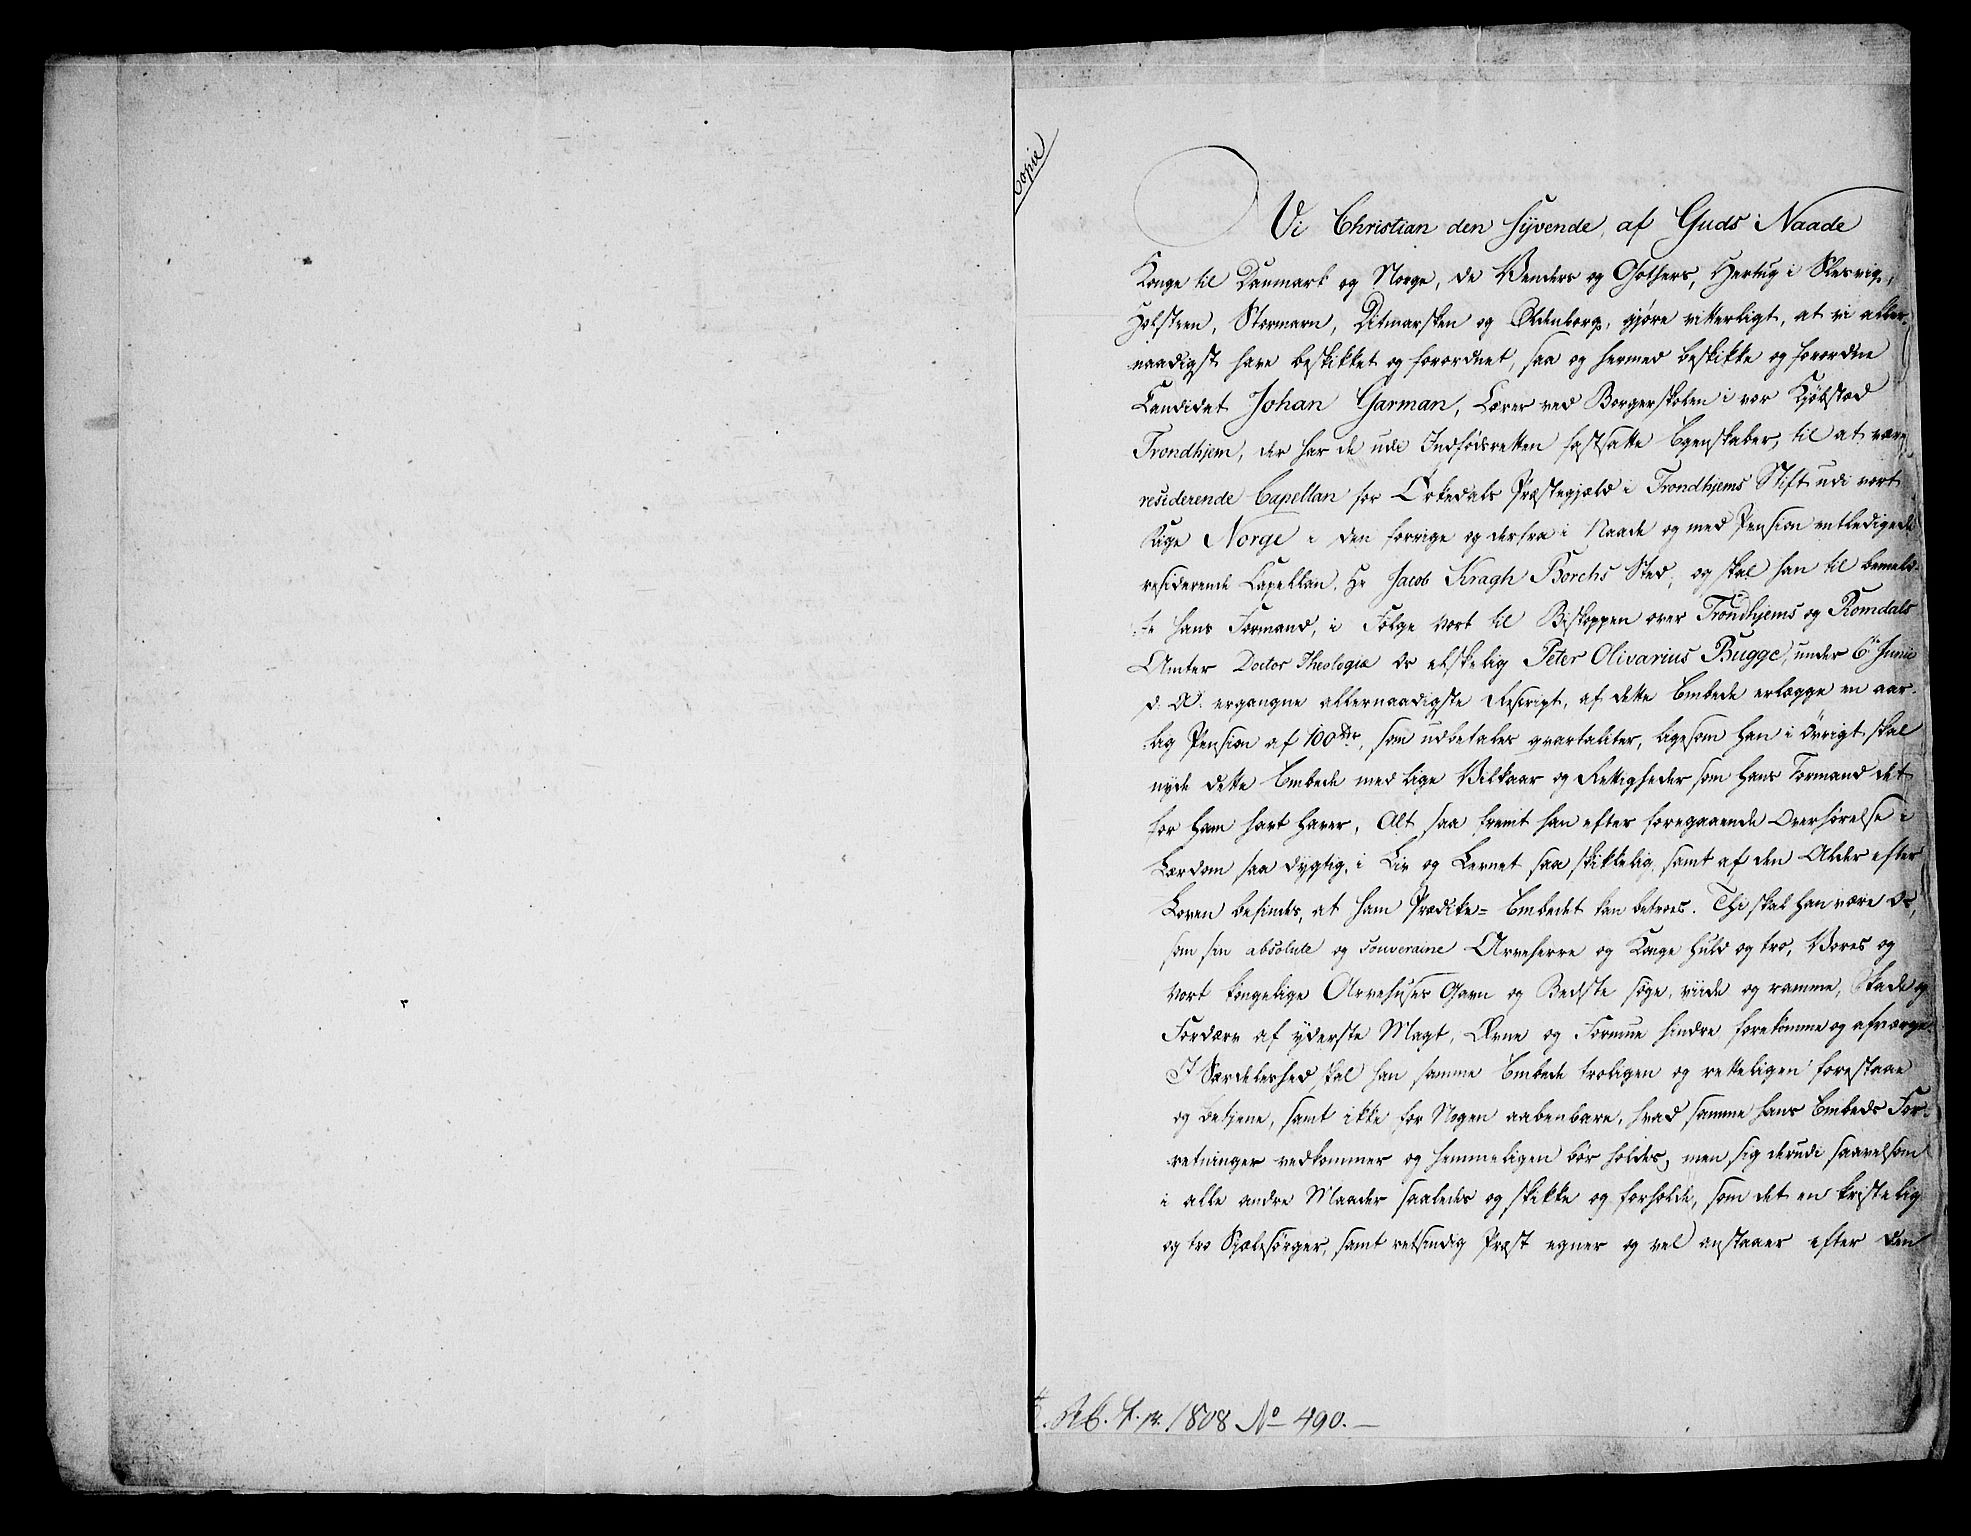 Copie
Vi Christian den Syvende, af Guds Naade
Konge til Danmark og Norge, de Venders og Gothers, Hertug i Slesvig,
Holsteen, Stormarn, Ditmarsken og Oldenborg, gjøre vitterligt, at vi aller-
naadigst have beskikket og forordnet, saa og hermed beskikke og forordne
Candidat Johan Garman, Lærer ved Borgerskolen i vor Kjøbstad
Trondhjem, der har de udi Indfødsretten fastsatte Egenskaber, til at være
residerende Capellan for Ørkedals Præstegjæld i Trondhjems Stift udi vort
Rige Norge i den forrige og derfra i Naade og med Pension entledigede
residerende Capellan, Hr Jacob Kragh Borchs Sted, og skal han til bemeld-
-te hans Formand, i Følge vort til Biskoppen over Trondhjems og Romdals
Amter Doctor Theologiæ Os elskelig Peter Olivarius Bugge, under 6te Junii
d. A. ergangne allernaadigste Rescript, af dette Embede erlægge en aar-
-lig Pension af 100 Rdr, som udbetales qvartaliter, ligesom han i øvrigt skal
nyde dette Embede med lige Vilkaar og Rettigheder som hans Formand det
for ham havt haver, Alt saa fremt han efter foregaaende Overhørelse i
Lærdom saa dygtig, i Liv og Levnet saa skikkelig, samt af den Alder efter
Loven befindes, at ham Prædike= Embedet kan betroes. Thi skal han være Os,
som sin absolute og souveraine Arveherre og Konge huld og tro, Vores og
vort kongelige Arvehuses Gavn og Bedste søge, viide og ramme, Skade og
Fordærv af yderste Magt, Evne og Formue hindre forekomme og afværge.
I Særdeleshed skal han samme Embede troligen og retteligen forestaae
og betjene, samt ikke for Nogen aabenbare, hvad samme hans Embeds For-
retninger vedkommer og hemmeligen bør holdes, men sig derudi saavelsom
i alle andre Maader saaledes og skikke og forholde, som det en kristelig
og tro Sjælesørger, samt retsindig Præst egner og vel anstaaer efter den
1808 No 490.